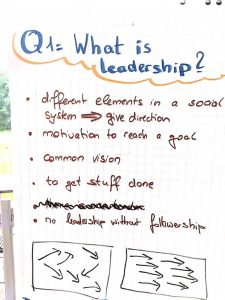 Q1: What is
leadership?
• different elements in a social
system ⇒ give direction
• motivation to reach a goal
• common vision
• to get stuff done
• no leadership without followership